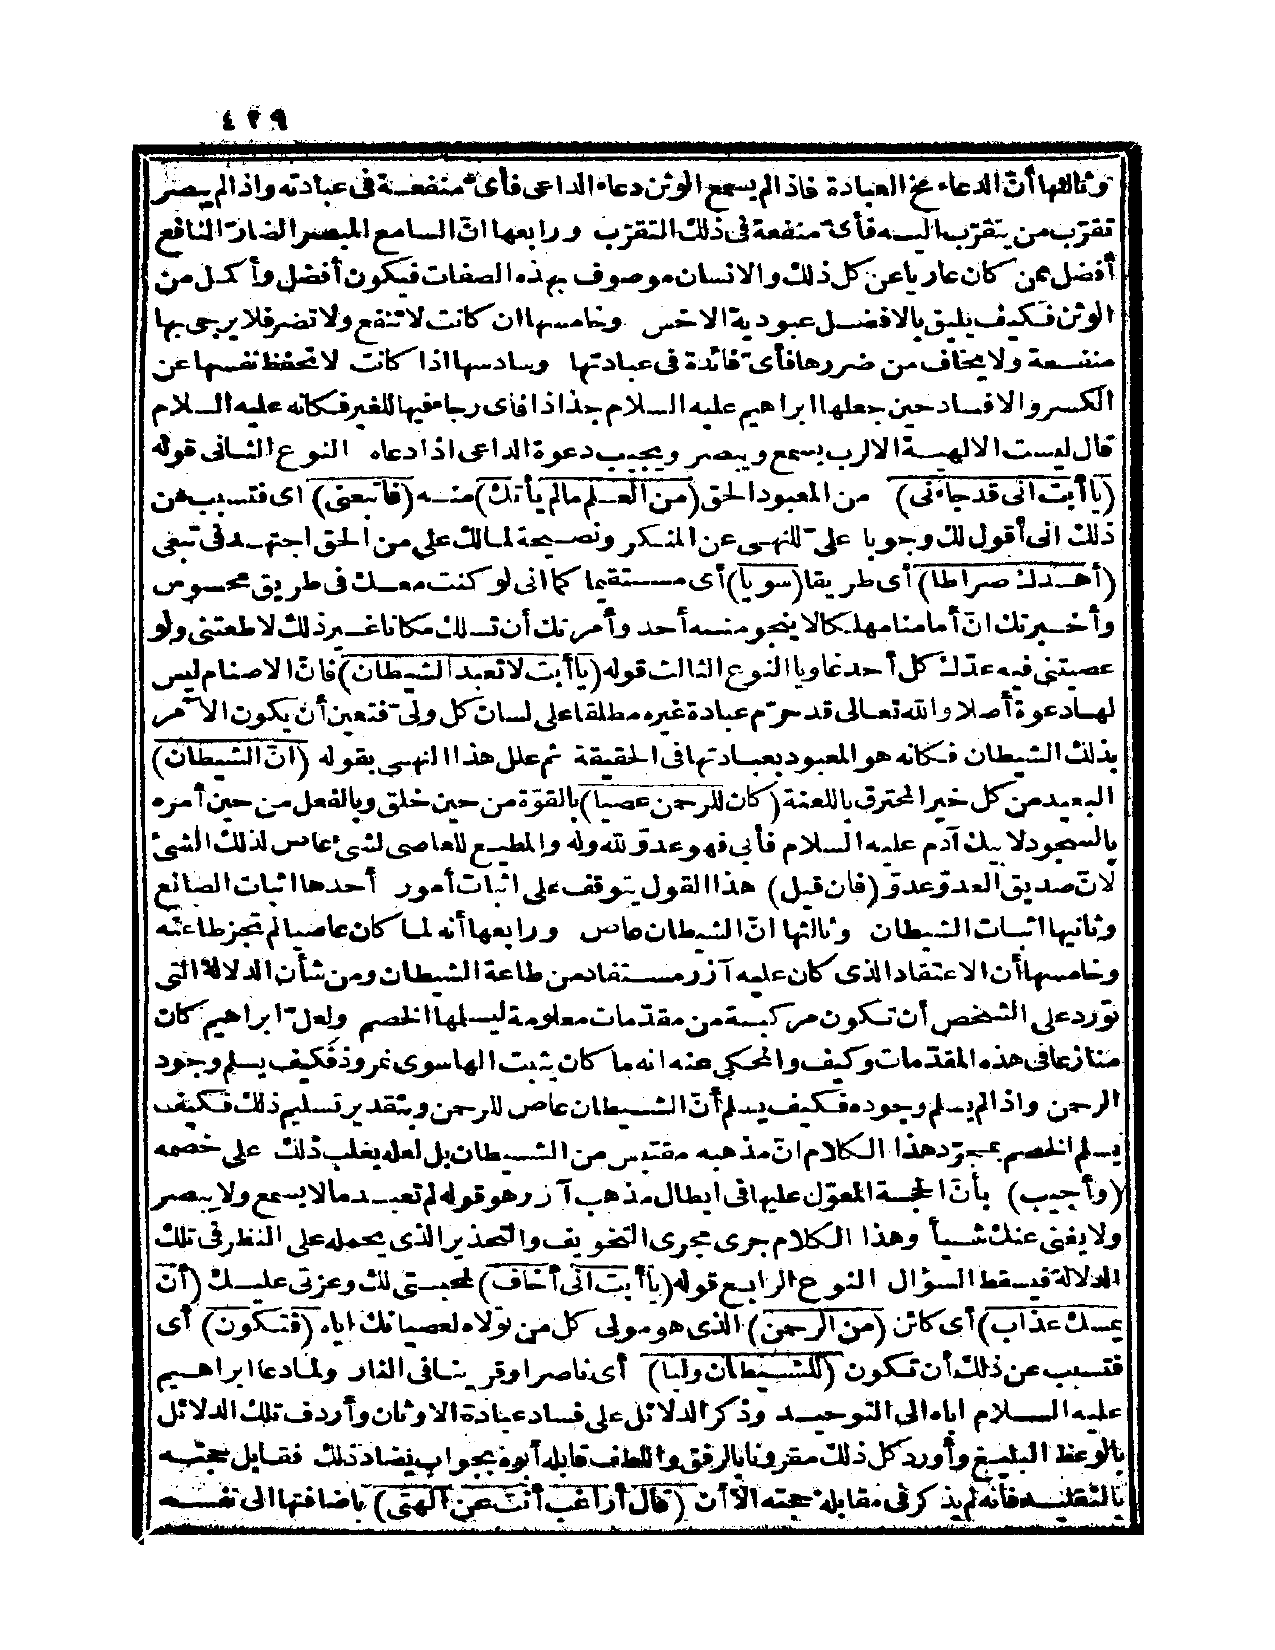 ٤٢٩
وثالثها أنّ الدعاء مخ العبادة فاذا لم يسمع الوثن دعاء الداعى فأىّ منفعة فى عبادته واذا لم يبصر
تقرّب من يتقرّب اليه فأىّ منفعة فى ذلك التقرّب ورابعها انّ السامع المبصر الضارّ النافع
أفضل ممن كان عاريا عن كل ذلك والانسان موصوف بهذه الصفات فيكون أفضل وأكمل من
الوثن فكيف يليق بالافضل عبودية الاخس وخامسها ان كانت لا تنفع ولا تضر فلا يرجى بها
منفعة ولا يخاف من ضررها فأىّ فائدة فى عبادتها وسادسها اذا كانت لا تحفظ نفسها عن
الكسر والافساد حين جعلها ابراهيم عليه السلام جذاذا فأى رجاء فيها للغير فكانه عليه السلام
قال ليست الالهية الا لرب يسمع ويبصر ويجيب دعوة الداعى اذا دعاه النوع الثانى قوله
(يا أبت انى قد جاءنى) من المعبود الحق (من العلم ما لم يأتك) منه (فاتبعنى) اى فتسبب عن
ذلك انى أقول لك وجوبا علىّ للنهى عن المنكر ونصيحة لمالك على من الحق اجتهد فى تبعى
(أهدك صراطا) أى طريقا (سويا) أى مستقيما كما انى لو كنت معك فى طريق محسوس
وأخبرتك انّ أمامنا مهلكا لا ينجو منه أحد وأمرتك أن تسلك مكانا غير ذلك لاطعتنى ولو
عصيتنى فيه عدّك كل أحد غاويا النوع الثالث قوله (يا أبت لا تعبد الشيطان) فانّ الاصنام ليس
لها دعوة أصلا والله تعالى قد حرّم عبادة غيره مطلقا على لسان كل ولىّ فتعين أن يكون الآمر
بذلك الشيطان فكانه هو المعبود بعبادتها فى الحقيقة ثم علل هذا النهى بقوله (انّ الشيطان)
البعيد من كل خير المحترق باللعنة (كان للرحمن عصيا) بالقوّة من حين خلق وبالفعل من حين أمره
بالسجود لابيك آدم عليه السلام فأبى فهو عدوّ لله وله والمطيع للعاصى لشئ عاص لذلك الشئ
لانّ صديق العدوّ عدوّ (فان قيل) هذا القول يتوقف على اثبات أمور أحدها اثبات الصانع
وثانيها اثبات الشيطان وثالثها انّ الشيطان عاص ورابعها أنه لما كان عاصيا لم تجز طاعته
وخامسها أن الاعتقاد الذى كان عليه آزر مستفاد من طاعة الشيطان ومن شأن الدلالة التى
تورد على الشخص أن تكون مركبة من مقدّمات معلومة ليسلمها الخصم ولعلّ ابراهيم كان
منازعا فى هذه المقدّمات وكيف والمحكى عنه انه ما كان يثبت الها سوى نمروذ فكيف يسلم وجود
الرحمن واذا لم يسلم وجوده فكيف يسلم أنّ الشيطان عاص للرحمن وبتقدير تسليم ذلك فكيف
يسلم الخصم بمجرّد هذا الكلام انّ مذهبه مقتبس من الشيطان بل لعله يقلب ذلك على خصمه
(وأجيب) بأنّ الحجة المعوّل عليها فى ابطال مذهب آزر هو قوله لم تعبد ما لا يسمع ولا يبصر
ولا يغنى عنك شيأ وهذا الكلام جرى مجرى التخويف والتحذير الذى يحمله على النظر فى تلك
الدلالة فيسقط السؤال النوع الرابع قوله (يا أبت انى أخاف) لمحبتى لك وعزتى عليك (أن
يمسك عذاب) أى كائن (من الرحمن) الذى هو مولى كل من تولاه لعصيانك اياه (فتكون) أى
فتسبب عن ذلك أن تكون (للشيطان وليا) أى ناصرا وقرينا فى النار ولما دعا ابراهيم
عليه السلام اباه الى التوحيد وذكر الدلائل على فساد عبادة الاوثان وأردف تلك الدلائل
بالوعظ البليغ وأورد كل ذلك مقرونا بالرفق واللطف قابله أبوه بجواب يضاد ذلك فقابل حجته
بالتقليد فانه لم يذكر فى مقابلة حجته الا أن (قال أراغب أنت عن آلهتى) باضافتها الى نفسه